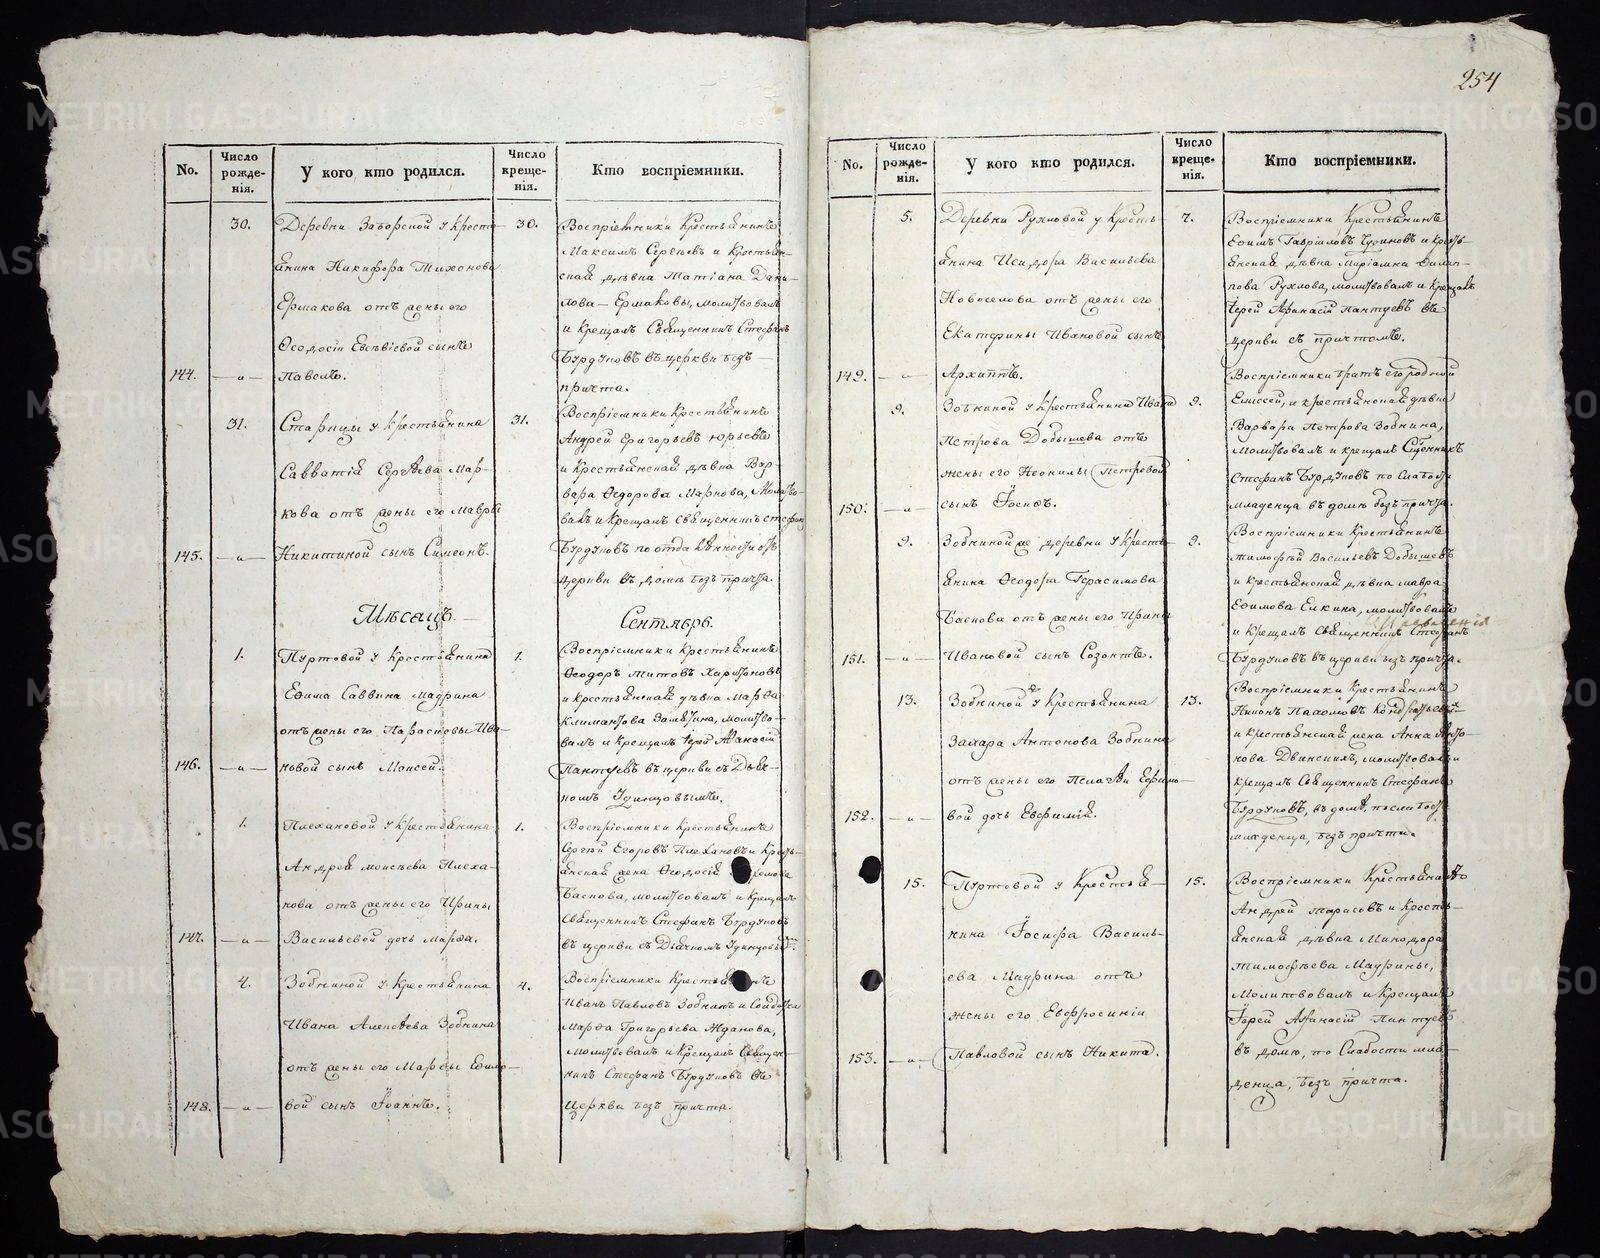 254
No.
Число рожде-нія.
У кого кто родился.
Число креще-нія.
Кто воспріемники.
30.
Деревни Заборской у кресть-
янина Никифора Тихонова
Ермакова отъ жены его
Ѳеодосіи Евсѣвіевой сынъ
144. —„— Павелъ.
30.
Воспріемники Крестьянинъ
Максимъ Сергѣевъ и Крестьян-
ская дѣвка Татіана Дани-
лова Ермаковы, молитвовалъ
и Крещалъ Священникъ Стефанъ
Бурдуковъ въ церкви безъ
причта.
31.
Старицы у крестьянина
Савватія Сергѣева Мар-
кова отъ жены его Мавры
145. —„— Никитиной сынъ Симеонъ.
31.
Воспріемники Крестьянинъ
Андрей Григорьевъ Юрьевъ
и Крестьянская дѣвка Вар-
вара Ѳедорова Маркова, Молитво-
валъ и Крещалъ Священникъ Стефанъ
Бурдуковъ по отдаленности отъ
Церкви въ домѣ безъ причта.
Мѣсяцъ
Сентябрь.
1.
Пуртовой у Крестьянина
Евѳима Саввина Мадрина
отъ жены его Параскевы Ива-
146. —„— новой сынъ Моисей.
1.
Воспріемники Крестьянинъ
Ѳеодоръ Титовъ Харитоновъ
и крестьянская дѣвка Марѳа
молитво-
валъ и Крещалъ Іерей Аѳанасій
Пантуевъ въ церкви съ Дьяч-
комъ Удинцовымъ.
1.
Плехановой у Крестьянина
Андрея Моисѣева Плеха-
нова отъ жены его Ирины
147. —„— Васильевой дочь Марѳа.
1.
Воспріемники Крестьянинъ
Сергѣй Егоровъ Плехановъ и Кресть-
янская жена Ѳеодосія
Баснова, молитвовалъ и Крещалъ
Священникъ Стефанъ Бурдуковъ
въ церкви съ Дьячкомъ Удинцовымъ.
4.
Зобниной у Крестьянина
Ивана Алексѣева Зобнина
отъ жены его Марѳы Евѳимо-
148. —„— вой сынъ Іоаннъ.
4.
Воспріемники Крестьянинъ
Иванъ Павловъ Зобнинъ и Солдатка
Марѳа Григорьева Жданова,
Молитвовалъ и Крещалъ Священ-
никъ Стефанъ Бурдуковъ въ
Церкви безъ причта.
No.
Число рожде-нія.
У кого кто родился.
Число креще-нія.
Кто воспріемники.
5.
Деревни Рухловой у Кресть-
янина Исидора Васильева
Новоселова отъ жены его
Екатерины Ивановой сынъ
149. —„— Архиппъ.
7.
Воспріемники Крестьянинъ
Евѳимъ Гавріиловъ Чуриновъ и кресть-
янская дѣвка Маріамна Филип-
пова Рухлова, молитвовалъ и Крещалъ
Іерей Аѳанасій Пантуевъ въ
церкви съ причтомъ.
9.
Зобниной у Крестьянина Ивана
Петрова Добышева отъ
жены его Неонилы Петровой
150. —„— сынъ Іосифъ.
9.
Воспріемники братъ его родной
Елиссей, и крестьянская дѣвка
Варвара Петрова Зобнина,
Молитвовалъ и крещалъ Священникъ
Стефанъ Бурдуковъ по слабости
младенца въ домѣ безъ причта.
9.
Зобниной же деревни у Кресть-
янина Ѳеодора Герасимова
Баснова отъ жены его Ирины
151. —„— Ивановой сынъ Созонтъ.
9.
Воспріемники Крестьянинъ
Тимоѳей Васильевъ Добышевъ
и крестьянская дѣвка Мавра
Евѳимова Елкина, молитвовалъ
и Крещалъ Священникъ Стефанъ
Бурдуковъ въ церкви безъ причта.
13.
Зобниной у Крестьянина
Захара Антонова Зобнина
отъ жены его Пелагѣи Ефимо-
152. —„— вой дочь Евфимія.
13.
Воспріемники Крестьянинъ
Никонъ Пахомовъ Кондратьевъ
и крестьянская жена Анна Анто-
нова Двинскихъ, молитвовалъ и
крещалъ Священникъ Стефанъ
Бурдуковъ, въ домѣ, по слабости
младенца, безъ причта.
15.
Пуртовой у Крестья-
нина Іосифа Василь-
ева Мадрина отъ
жены его Евфросиніи
153. —„— Павловой сынъ Никита.
15.
Воспріемники Крестьянинъ
Андрей Тарасовъ и Кресть-
янская дѣвка Минодора
Тимоѳѣева Мадрины,
Молитвовалъ и Крещалъ
Іерей Аѳанасій Пантуевъ
въ домѣ, по Слабости мла-
денца, безъ причта.
METRIKI.GASO-URAL.RU